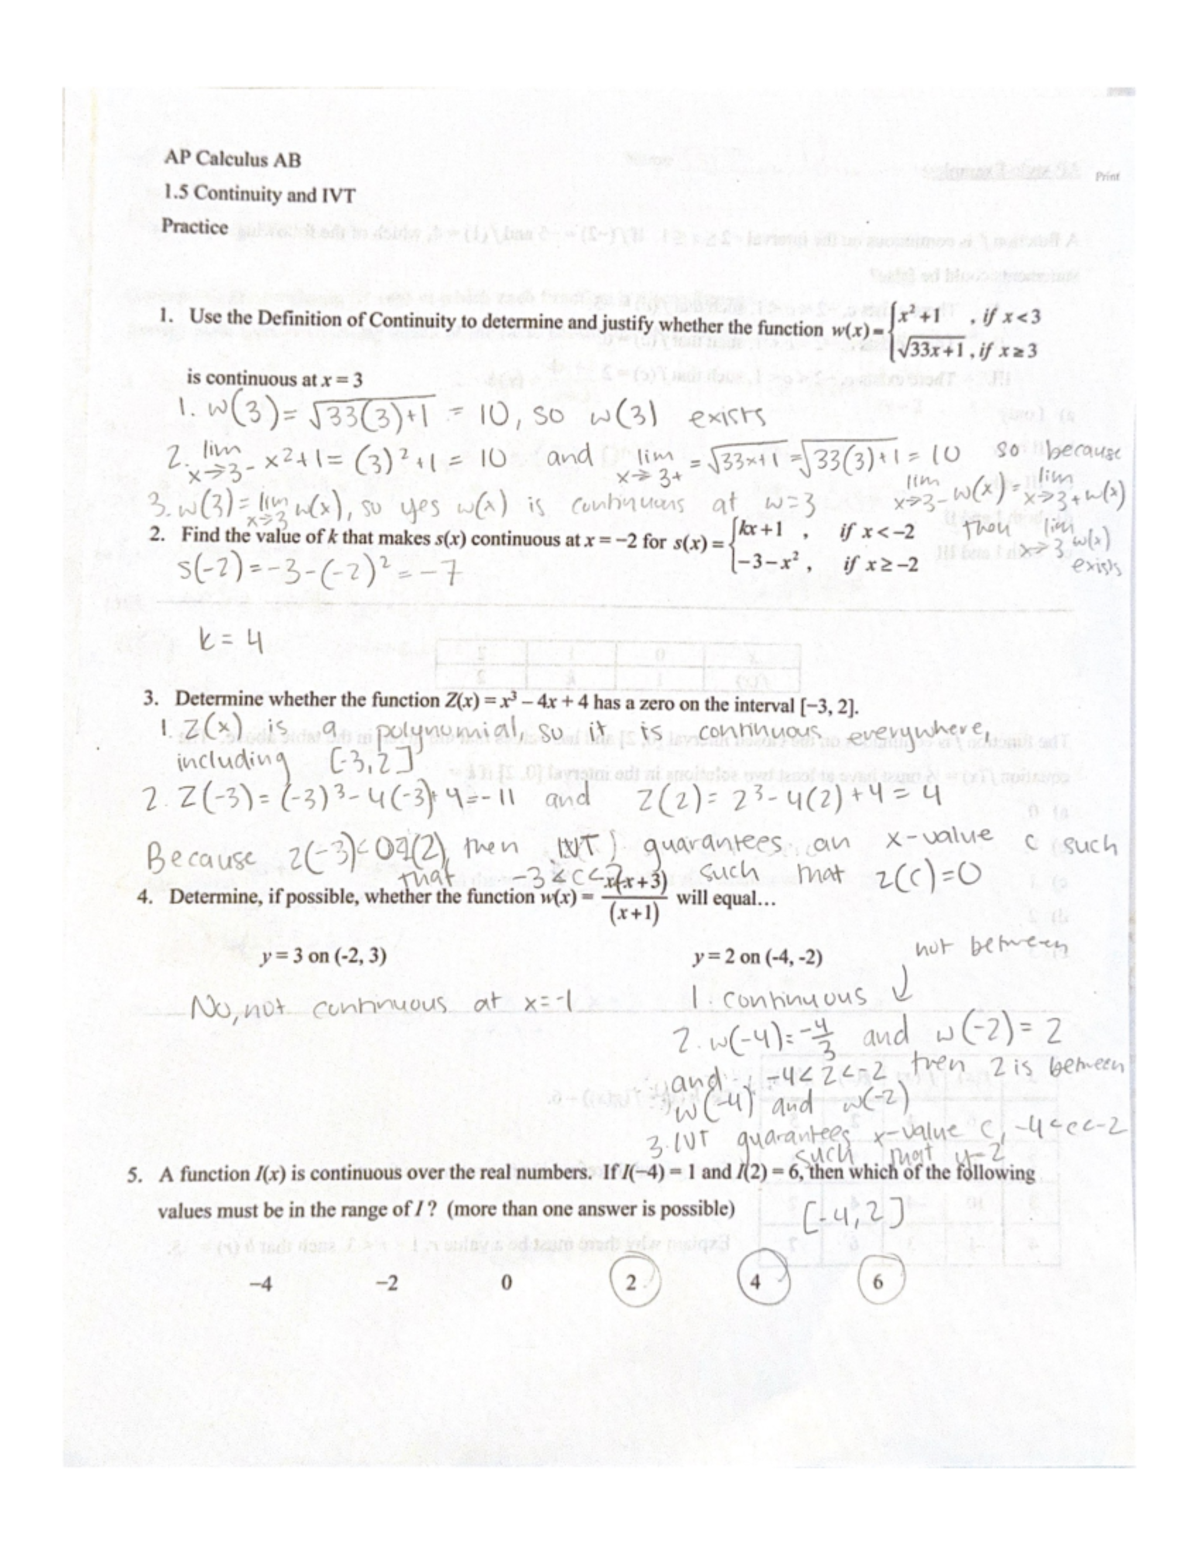 Print
AP Calculus AB
1.5 Continuity and IVT
Practice
1. Use the Definition of Continuity to determine and justify whether the function w(x) = { x² + 1 , if x < 3
√33x+1 , if x ≥ 3
is continuous at x = 3
1. w(3) = √33(3)+1 = 10, so w(3) exists
2. lim x→3- x²+1 = (3)²+1 = 10 and lim x→3+ = √33x+1 = √33(3)+1 = 10 so because
lim x→3- w(x) = lim x→3+ w(x)
3. w(3) = lim x→3 w(x), so yes w(x) is continuous at w=3
then lim x→3 w(x) exists
2. Find the value of k that makes s(x) continuous at x = −2 for s(x) = { kx + 1 , if x < −2
−3 − x² , if x ≥ −2
s(-2) = -3-(-2)² = -7
k = 4
3. Determine whether the function Z(x) = x³ – 4x + 4 has a zero on the interval [−3, 2].
1. Z(x) is a polynomial, so it is continuous everywhere,
including [-3,2]
2. Z(-3) = (-3)³-4(-3)+4=-11 and Z(2) = 2³-4(2)+4 = 4
Because z(-3)<0<z(2), then IVT guarantees an x-value c such
that -3<c<2 such that z(c)=0
4. Determine, if possible, whether the function w(x) = x(x+3)/(x+1) will equal…
y = 3 on (-2, 3)
y = 2 on (-4, -2)
not between
No, not continuous at x=-1
1. continuous
2. w(-4)=-4/3 and w(-2) = 2
and -4<2<-2 then 2 is between
w(-4) and w(-2)
3. IVT guarantees x-value c, -4<c<-2
such that y=2
5. A function I(x) is continuous over the real numbers. If I(−4) = 1 and I(2) = 6, then which of the following
values must be in the range of I ? (more than one answer is possible)
[-4,2]
−4 −2 0 2 4 6